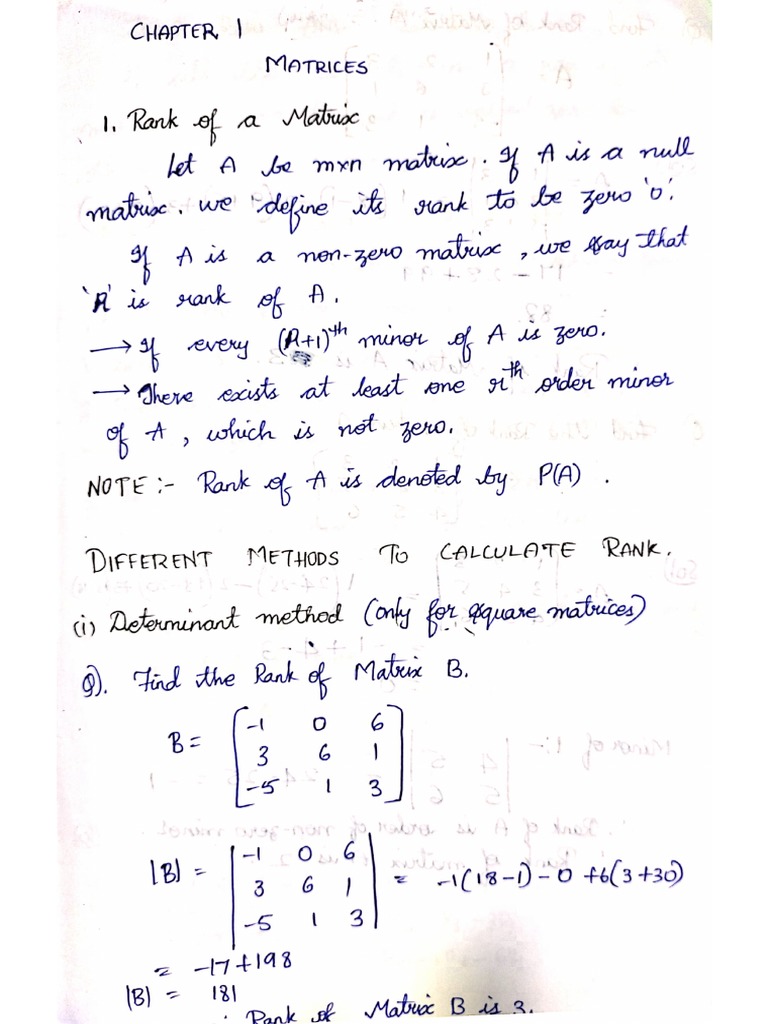 CHAPTER 1
MATRICES
1. Rank of a Matrix
Let A be mxn matrix. If A is a null
matrix. we define its rank to be zero '0'.
If A is a non-zero matrix, we say that
'R' is rank of A.
→ If every (R+1)th minor of A is zero.
→ There exists at least one rth order minor
of A, which is not zero.
NOTE :- Rank of A is denoted by P(A) .
DIFFERENT METHODS TO CALCULATE RANK.
(i) Determinant method (only for square matrices)
Q). Find the Rank of Matrix B.
B = [ -1 0 6
3 6 1
-5 1 3 ]
|B| = | -1 0 6
3 6 1 | = -1(18-1) - 0 +6(3+30)
-5 1 3 |
= -17+198
|B| = 181
∴ Rank of Matrix B is 3.